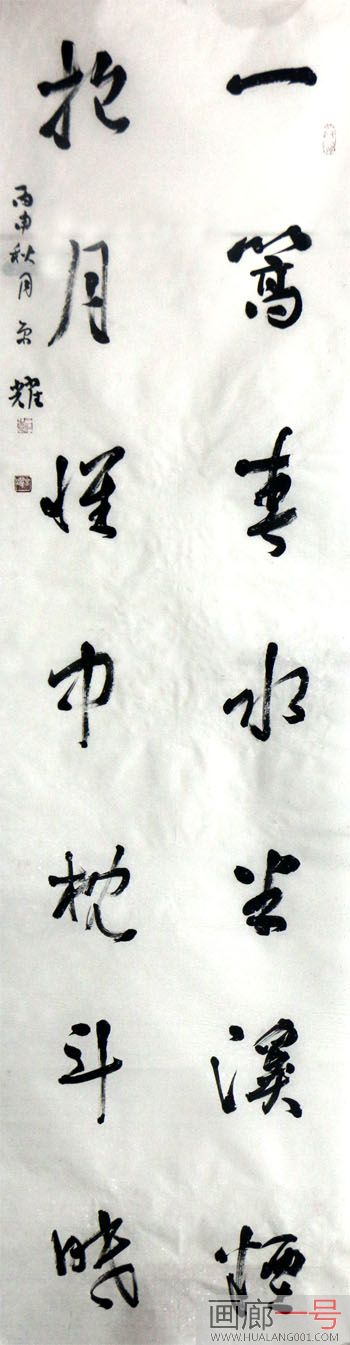 一篙春水半溪煙
抱月懷中枕斗眠
丙申秋月 耀
画廊一号
WWW.HUALANG001.COM